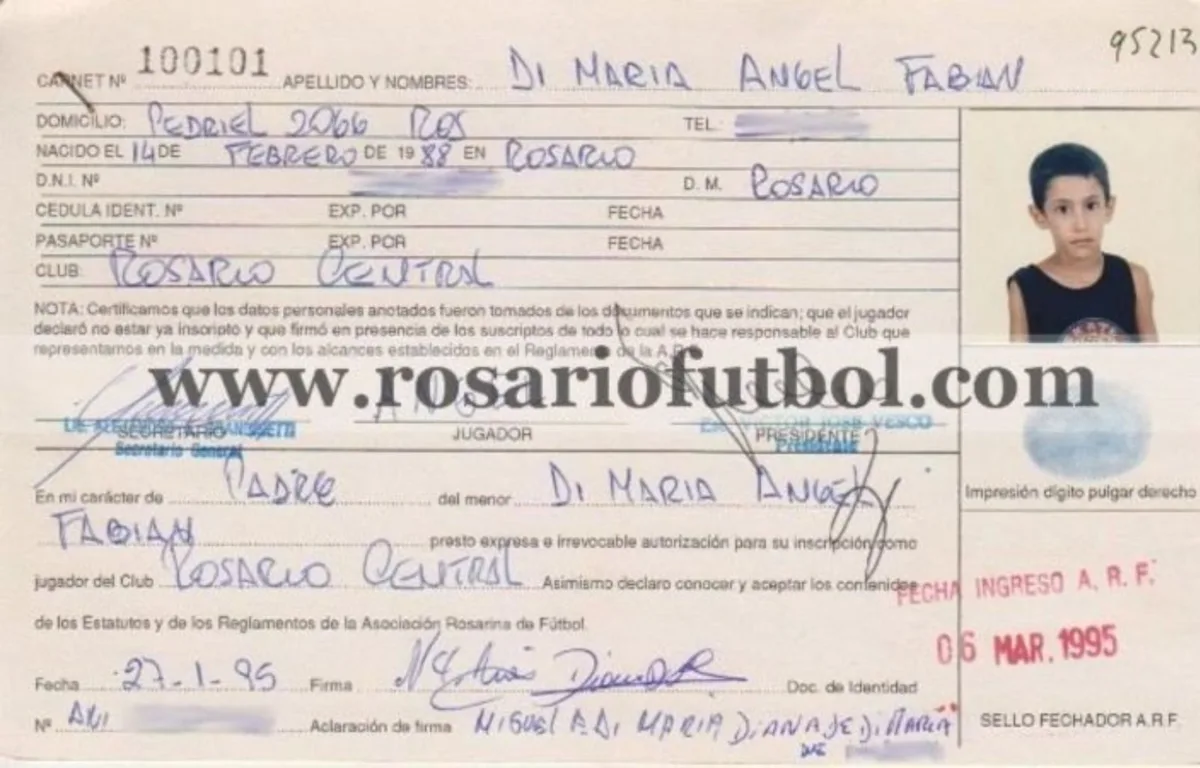 95213
CARNET Nº 100101 APELLIDO Y NOMBRES: DI MARIA ANGEL FABIAN
DOMICILIO: PEDRIEL 2066 ROS TEL.
NACIDO EL 14 DE FEBRERO DE 1988 EN ROSARIO
D.N.I. Nº D. M. ROSARIO
CEDULA IDENT. Nº EXP. POR FECHA
PASAPORTE Nº EXP. POR FECHA
CLUB: ROSARIO CENTRAL
NOTA: Certificamos que los datos personales anotados fueron tomados de los documentos que se indican; que el jugador
declaró no estar ya inscripto y que firmó en presencia de los suscriptos de todo lo cual se hace responsable al Club que
representamos en la medida y con los alcances establecidos en el Reglamento de la A.R.F.
www.rosariofutbol.com
ANGEL
JOSE VESCO
SECRETARIO JUGADOR PRESIDENTE
Secretario General Presidente
Impresión dígito pulgar derecho
En mi carácter de PADRE del menor DI MARIA ANGEL
FABIAN presto expresa e irrevocable autorización para su inscripción como
jugador del Club ROSARIO CENTRAL Asimismo declaro conocer y aceptar los contenidos
de los Estatutos y de los Reglamentos de la Asociación Rosarina de Fútbol.
FECHA INGRESO A. R. F.
06 MAR. 1995
Fecha 27-1-95 Firma Doc. de Identidad
Nº Aclaración de firma MIGUEL A. DI MARIA DIANA DE DI MARIA
SELLO FECHADOR A.R.F.